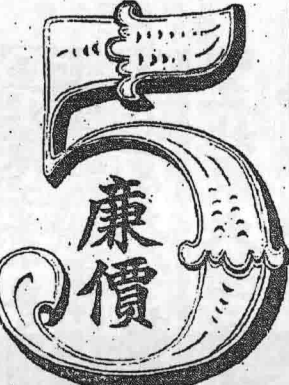 5
廉價